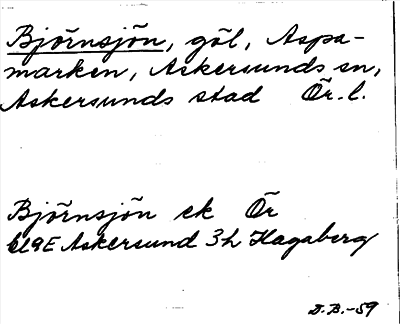 Björnsjön, göl, Aspa-
marken, Askersunds sn,
Askersunds stad Ör. l.
Björnsjön ek Ör
9E Askersund 3h Hagaberg
D.B.-59